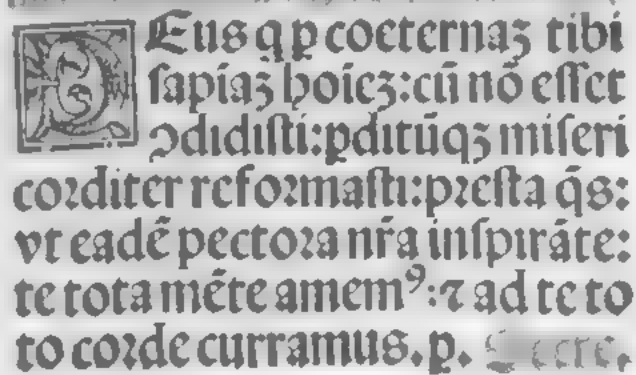 DEus q̄ ꝑ coeternaꝫ tibi
ſapiaꝫ hoieꝫ: cū nō eſſet
ↄdidiſti: ꝑditūqꝫ miſeri
coꝛditer refoꝛmaſti: pꝛeſta q̄s:
vt eadē pectoꝛa nr̄a inſpirāte:
te tota mēte amemꝰ: ⁊ ad te to
to coꝛde curramus. p.